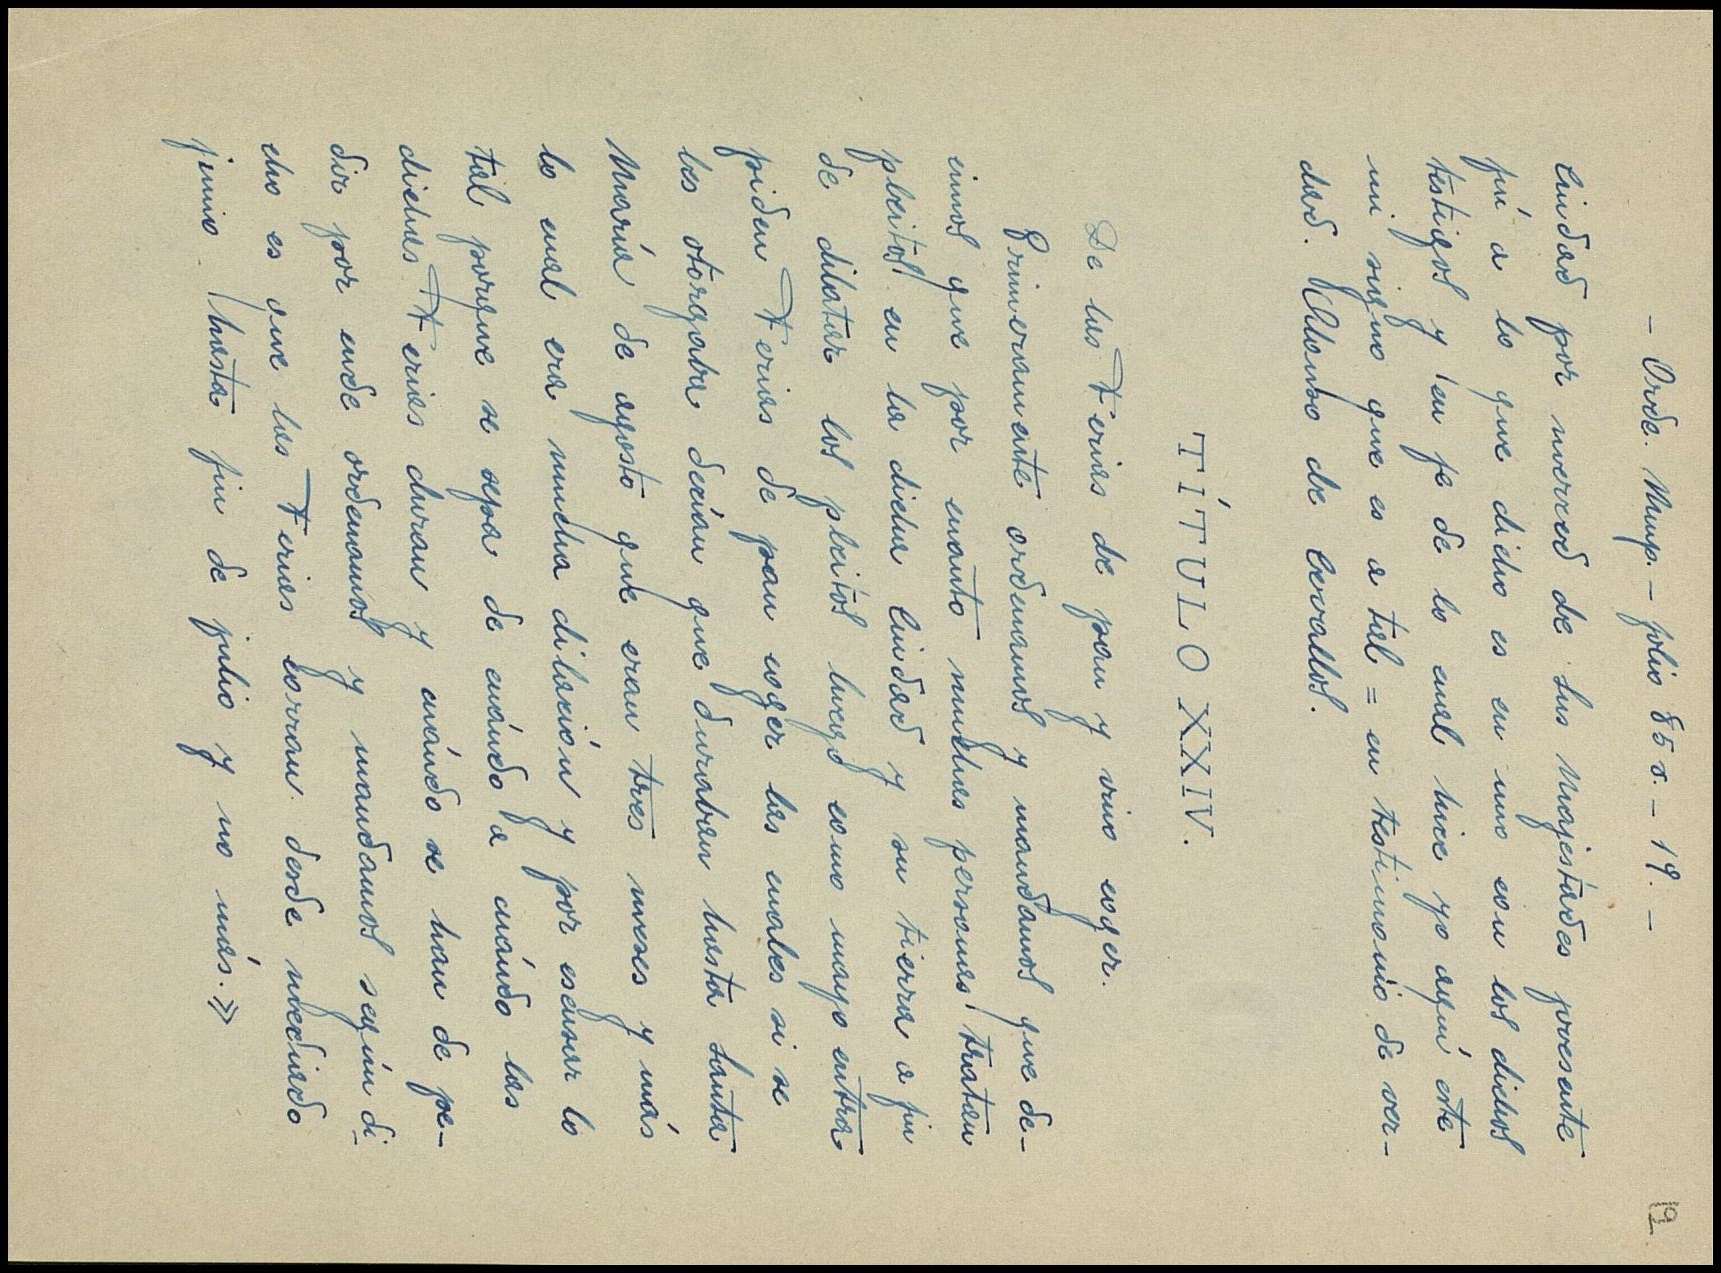 - Orde. Munp. - folio 85 v. - 19. -
19
Ciudad por merced de sus Majestades presente
fuí a lo que dicho es en uno con los dichos
testigos y en fe de lo cual hice yo aquí este
mi signo que es a tal = en testimonio de ver-
dad. Alonso de Cevallos.
TÍTULO XXIV.
De las Ferias de pan y vino coger.
Primeramente ordenamos y mandamos que de-
cimos que por cuanto muchas personas tratan
pleitos en la dicha Ciudad y su tierra a fin
de dilatar los pleitos luego como mayo entra
piden Ferias de pan coger las cuales si se
les otorgaba decían que duraban hasta Santa
María de agosto que eran tres meses y más
lo cual era mucha dilación y por escusar lo
tal porque se sepa de cuándo a cuándo las
dichas Ferias duran y cuándo se han de pe-
dir por ende ordenamos y mandamos según di-
cho es que las Ferias corran desde mediado
junio hasta fin de julio y no más.»